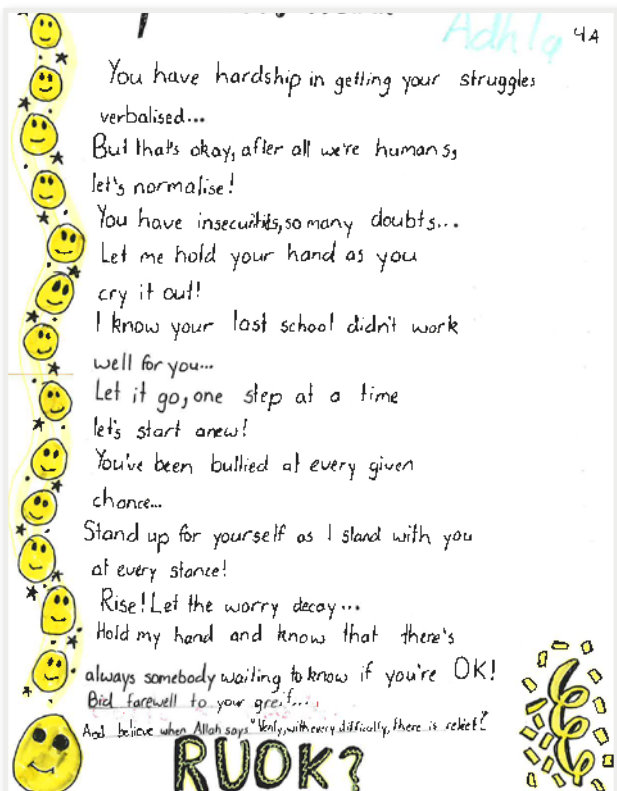 Adhla 4A
You have hardship in getting your struggles
verbalised...
But that's okay, after all we're humans,
let's normalise!
You have insecuritits, so many doubts...
Let me hold your hand as you
cry it out!
I know your last school didn't work
well for you...
Let it go, one step at a time
let's start anew!
You've been bullied at every given
chance...
Stand up for yourself as I stand with you
at every stance!
Rise! Let the worry decay...
Hold my hand and know that there's
always somebody waiting to know if you're OK!
Bid farewell to your greif...
And believe when Allah says "Verily, with every difficulty, there is relief!"
RUOK?